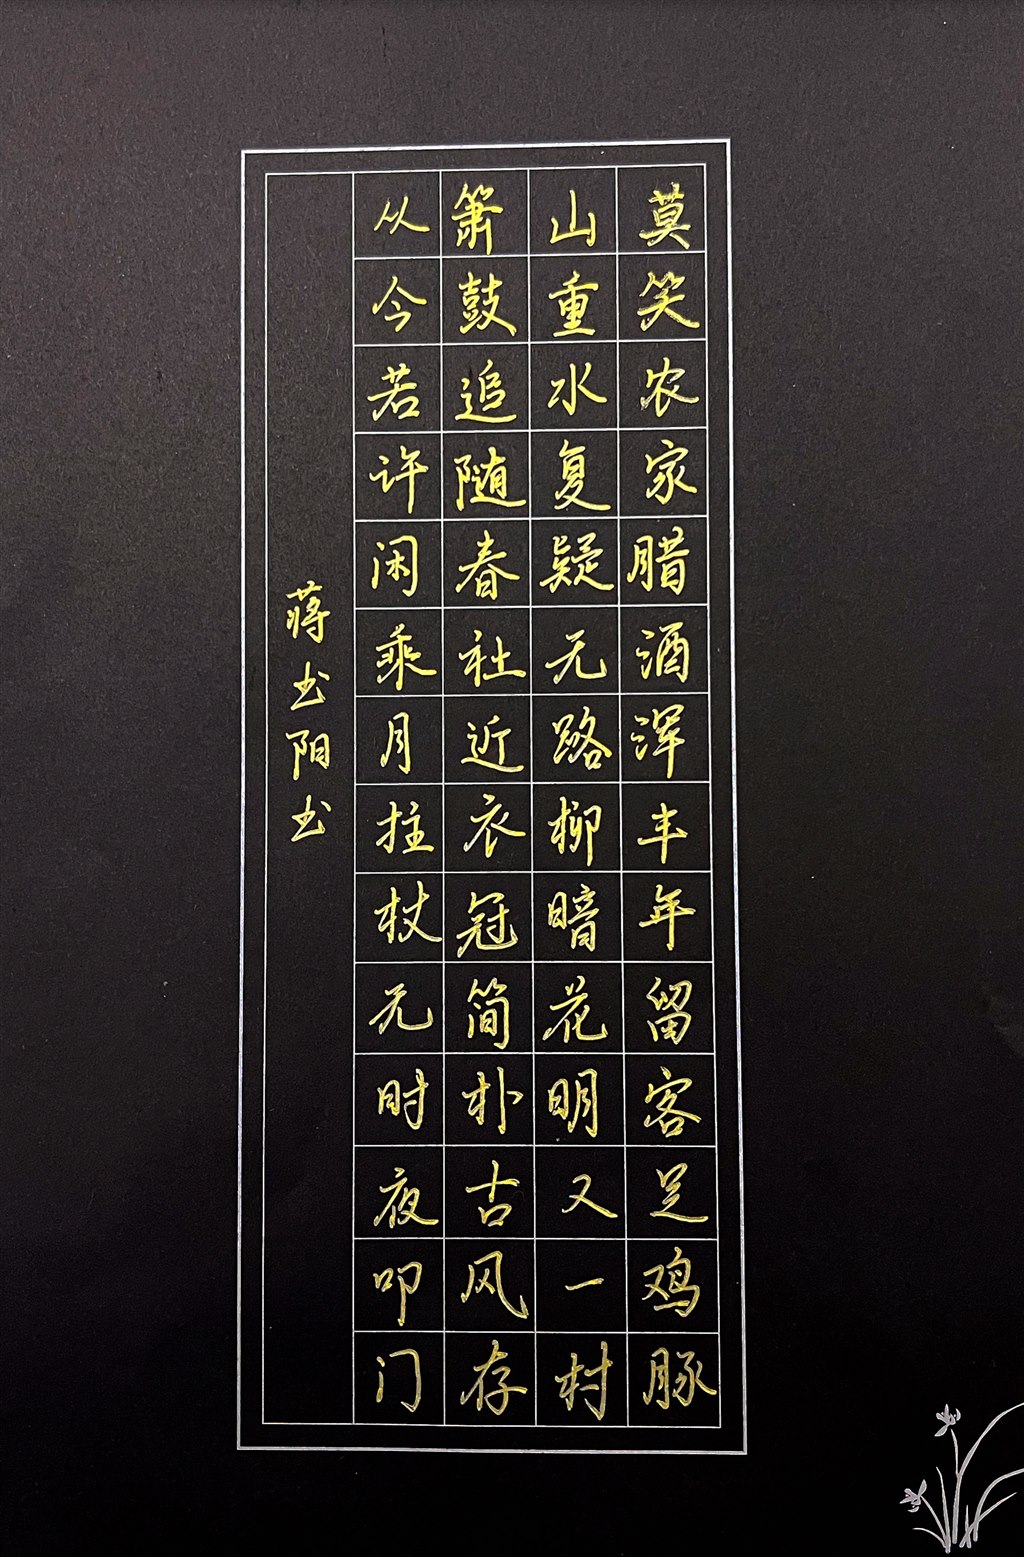 莫笑农家腊酒浑丰年留客足鸡豚
山重水复疑无路柳暗花明又一村
箫鼓追随春社近衣冠简朴古风存
从今若许闲乘月拄杖无时夜叩门
蒋书阳书